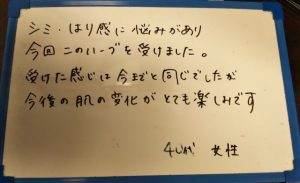 シミ・はり感に悩みがあり
今回このハーブを受けました。
受けた感じは今までと同じでしたが
今後の肌の変化がとても楽しみです
40代 女性